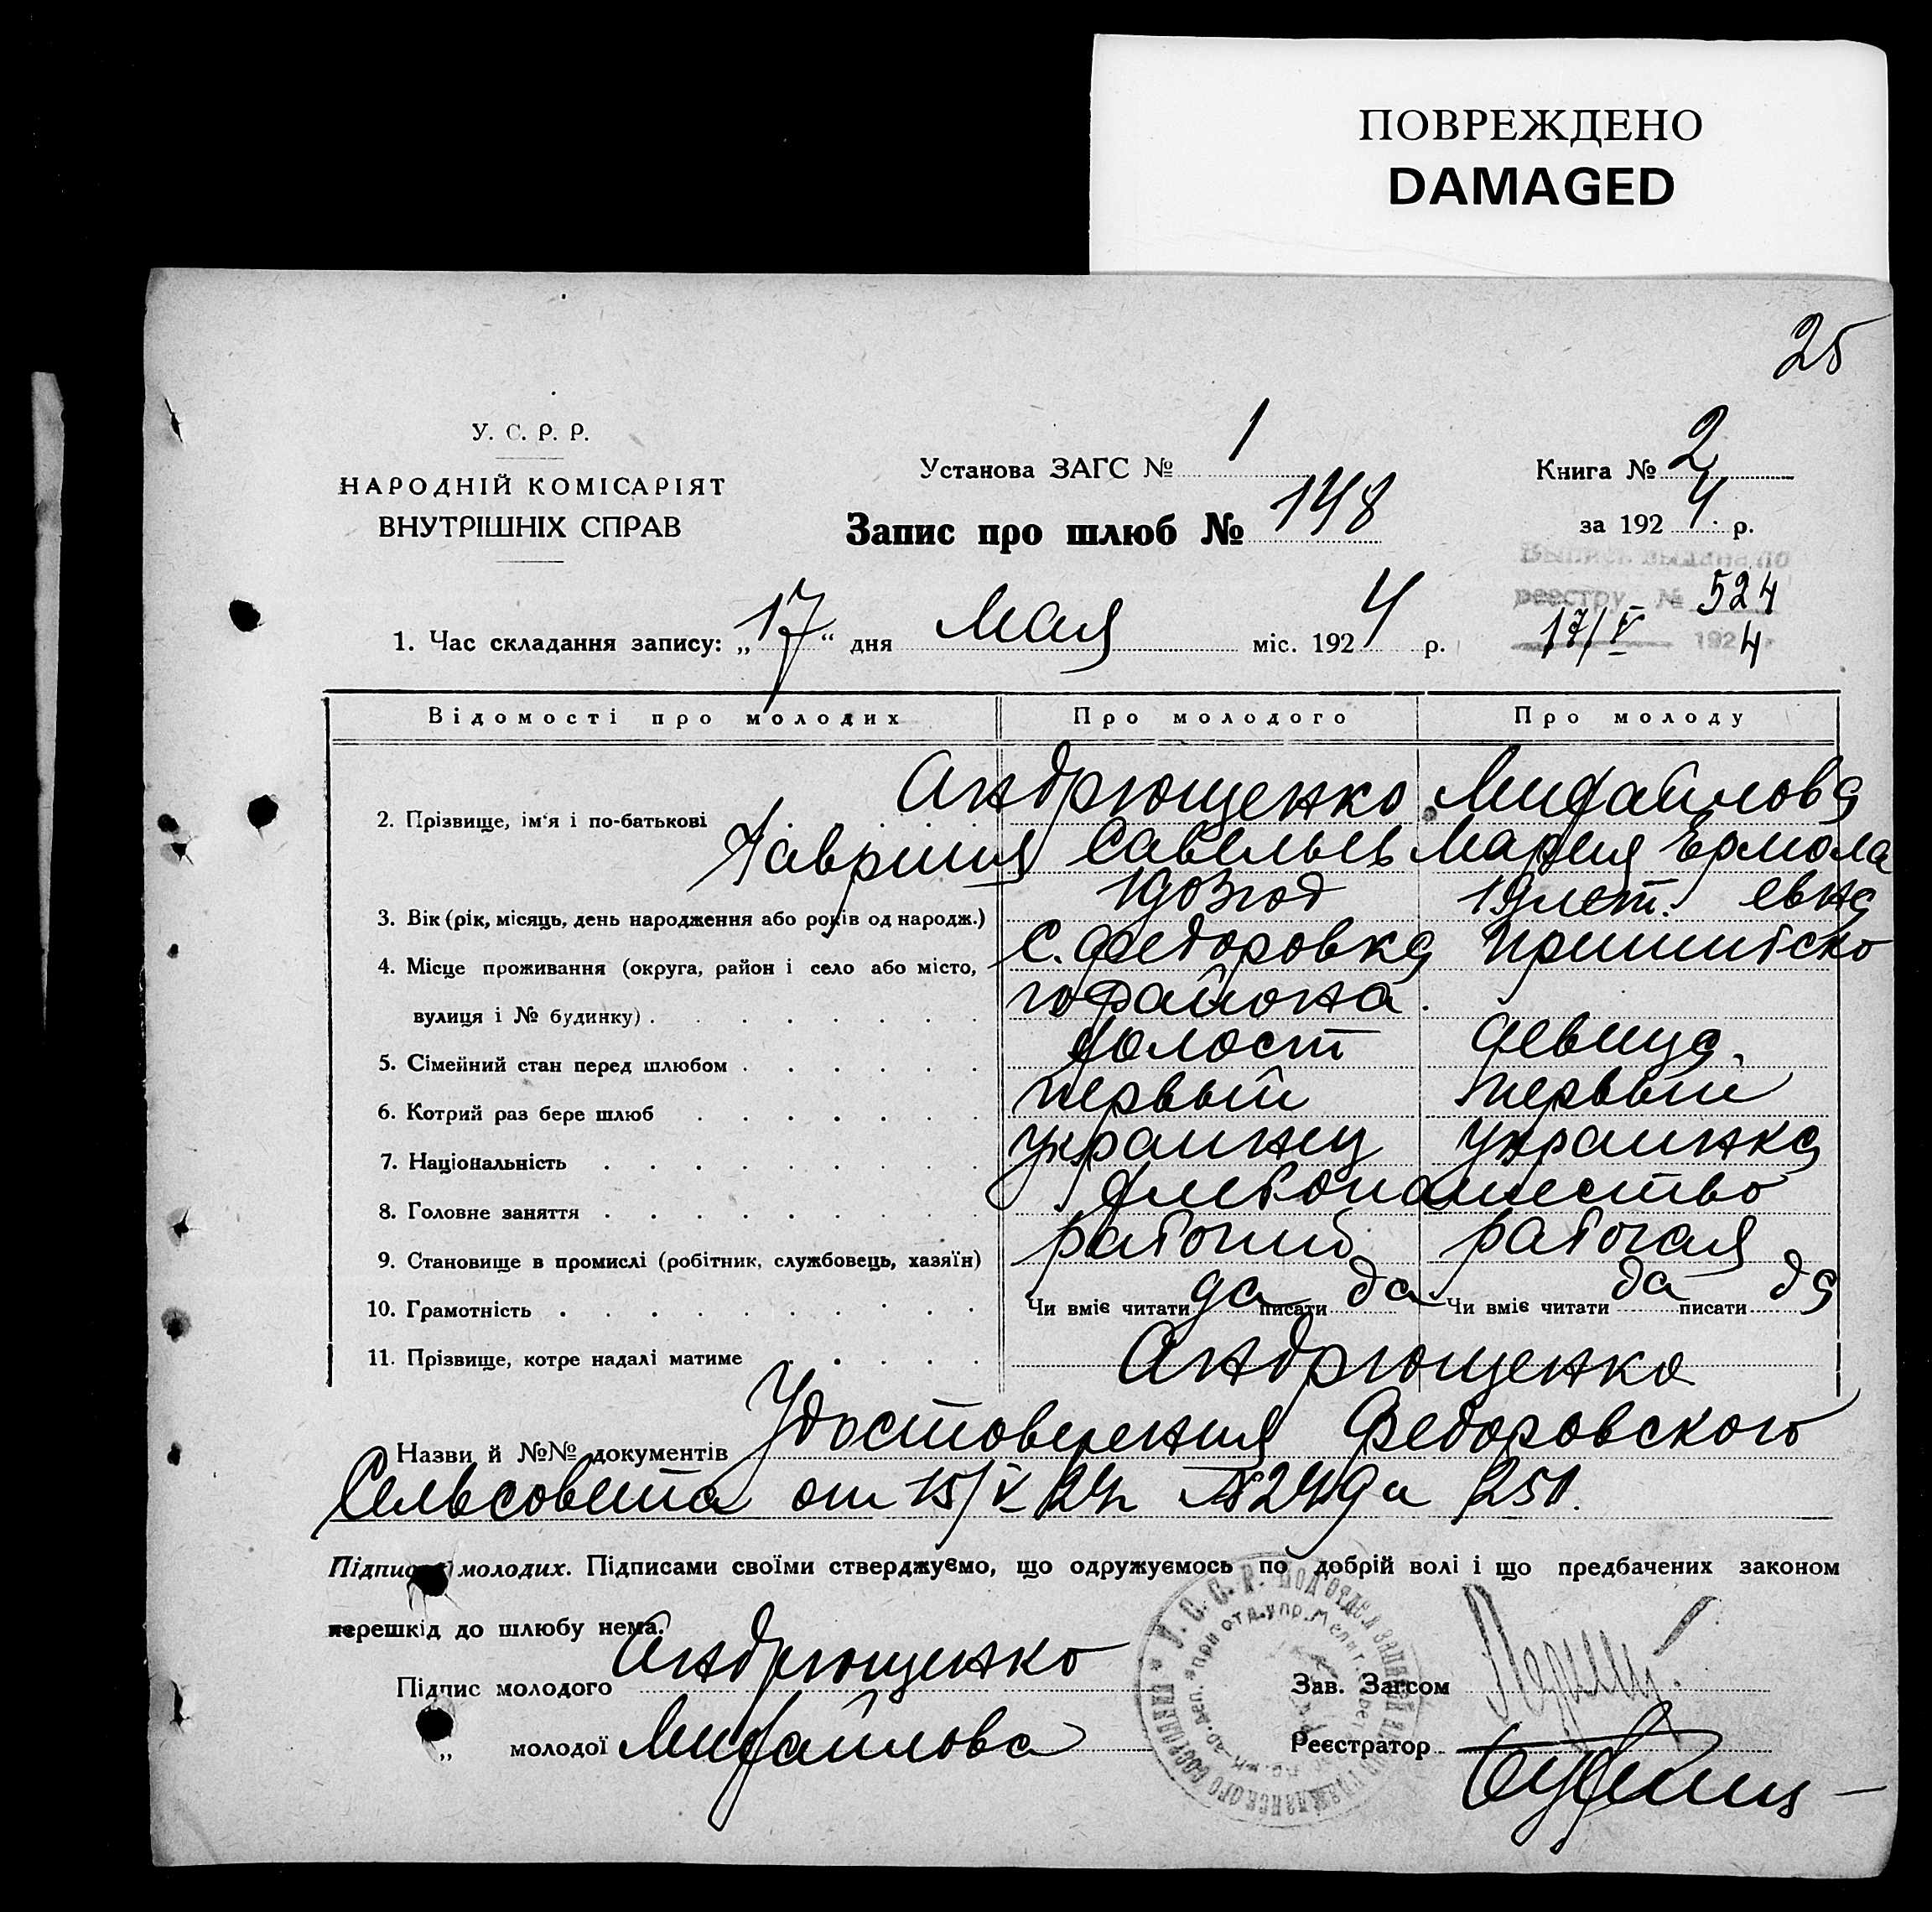 ПОВРЕЖДЕНО
DAMAGED
25
У. С. Р. Р.
НАРОДНІЙ КОМІСАРІЯТ
ВНУТРІШНІХ СПРАВ
Установа ЗАГС № 1
Запис про шлюб № 148
Книга № 2
за 1924 р.
Выпись выдана по
реестру № 524
17/V 1924 г
1. Час складання запису: „17“ дня Мая міс. 1924 р.
Відомості про молодих Про молодого Про молоду
2. Прізвище, ім'я і по-батькові Андрющенко Михайлова
Гавриил Савельев Мария Ермола
евна
3. Вік (рік, місяць, день народження або років од народж.) 1903 год 19 лет.
4. Місце проживання (округа, район і село або місто, С. Федоровка Пришибско
вулиця і № будинку) го района.
5. Сімейний стан перед шлюбом холост девица.
6. Котрий раз бере шлюб первый первый
7. Національність украинец украинка
8. Головне заняття хлебопашество
9. Становище в промислі (робітник, службовець, хазяїн) рабочий рабочая
10. Грамотність Чи вміє читати да писати да Чи вміє читати да писати да
11. Прізвище, котре надалі матиме Андрющенко
Назви й №№ документів Удостоверения Федоровского
Сельсовета от 15/V 24г №249 и 250.
Підписи молодих. Підписами своїми стверджуємо, що одружуємось по добрій волі і що предбачених законом
перешкід до шлюбу нема.
Підпис молодого Андрющенко
Зав. Загсом
„ молодої Михайлова
Реєстратор
У. С. С. Р. ПОДОТДЕЛ ЗАПИСИ АКТОВ ГРАЖДАНСКОГО СОСТОЯНИЯ
при отд. упр. Мелит.